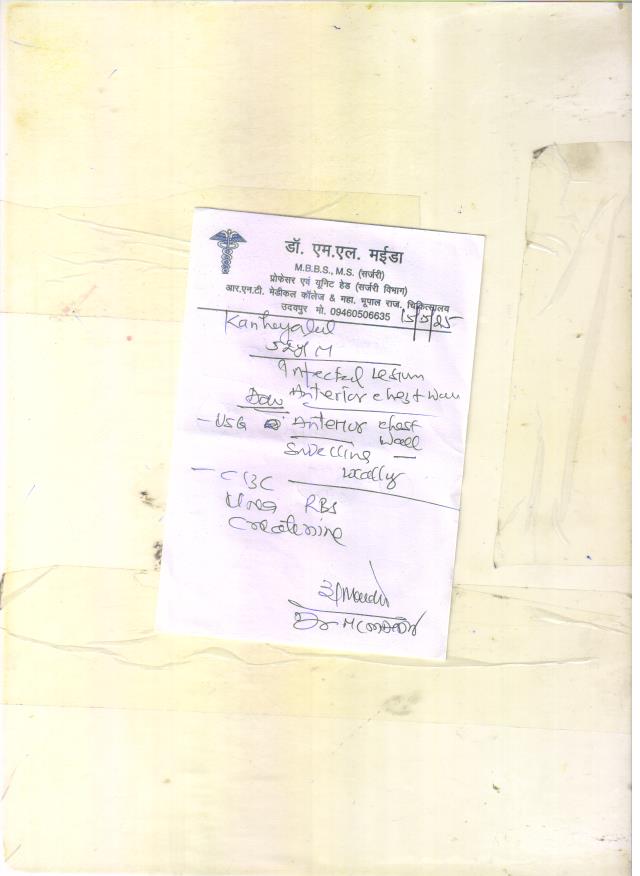 डॉ. एम.एल. मईडा
M.B.B.S., M.S. (सर्जरी)
प्रोफेसर एवं यूनिट हेड (सर्जरी विभाग)
आर.एन.टी. मेडीकल कॉलेज & महा. भूपाल राज. चिकित्सालय
उदयपुर मो. 09460506635 15/5/25
Kanheyalal
M
Infected Lesium
Anterior chest wall
- USG Anterior chest
wall
Swelling -
Locally
- CBC
Urea RBS
Createnine
Dr